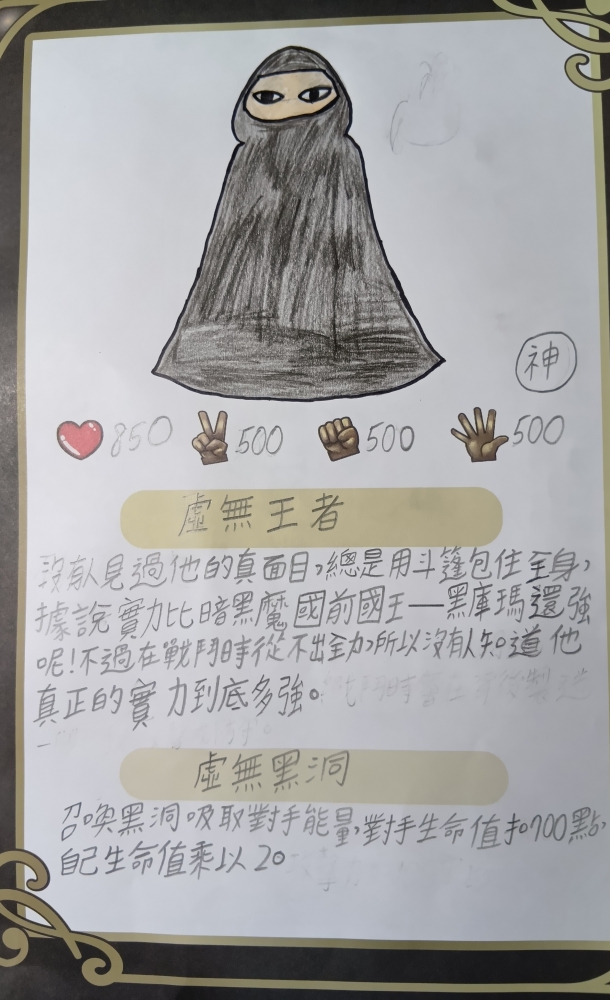 神
850 500 500 500
虛無王者
沒有人見過他的真面目,總是用斗篷包住全身,
據說實力比暗黑魔國前國王—黑庫瑪還強
呢!不過在戰鬥時從不出全力,所以沒有人知道他
真正的實力到底多強。
虛無黑洞
召喚黑洞吸取對手能量,對手生命值扣700點,
自己生命值乘以2。